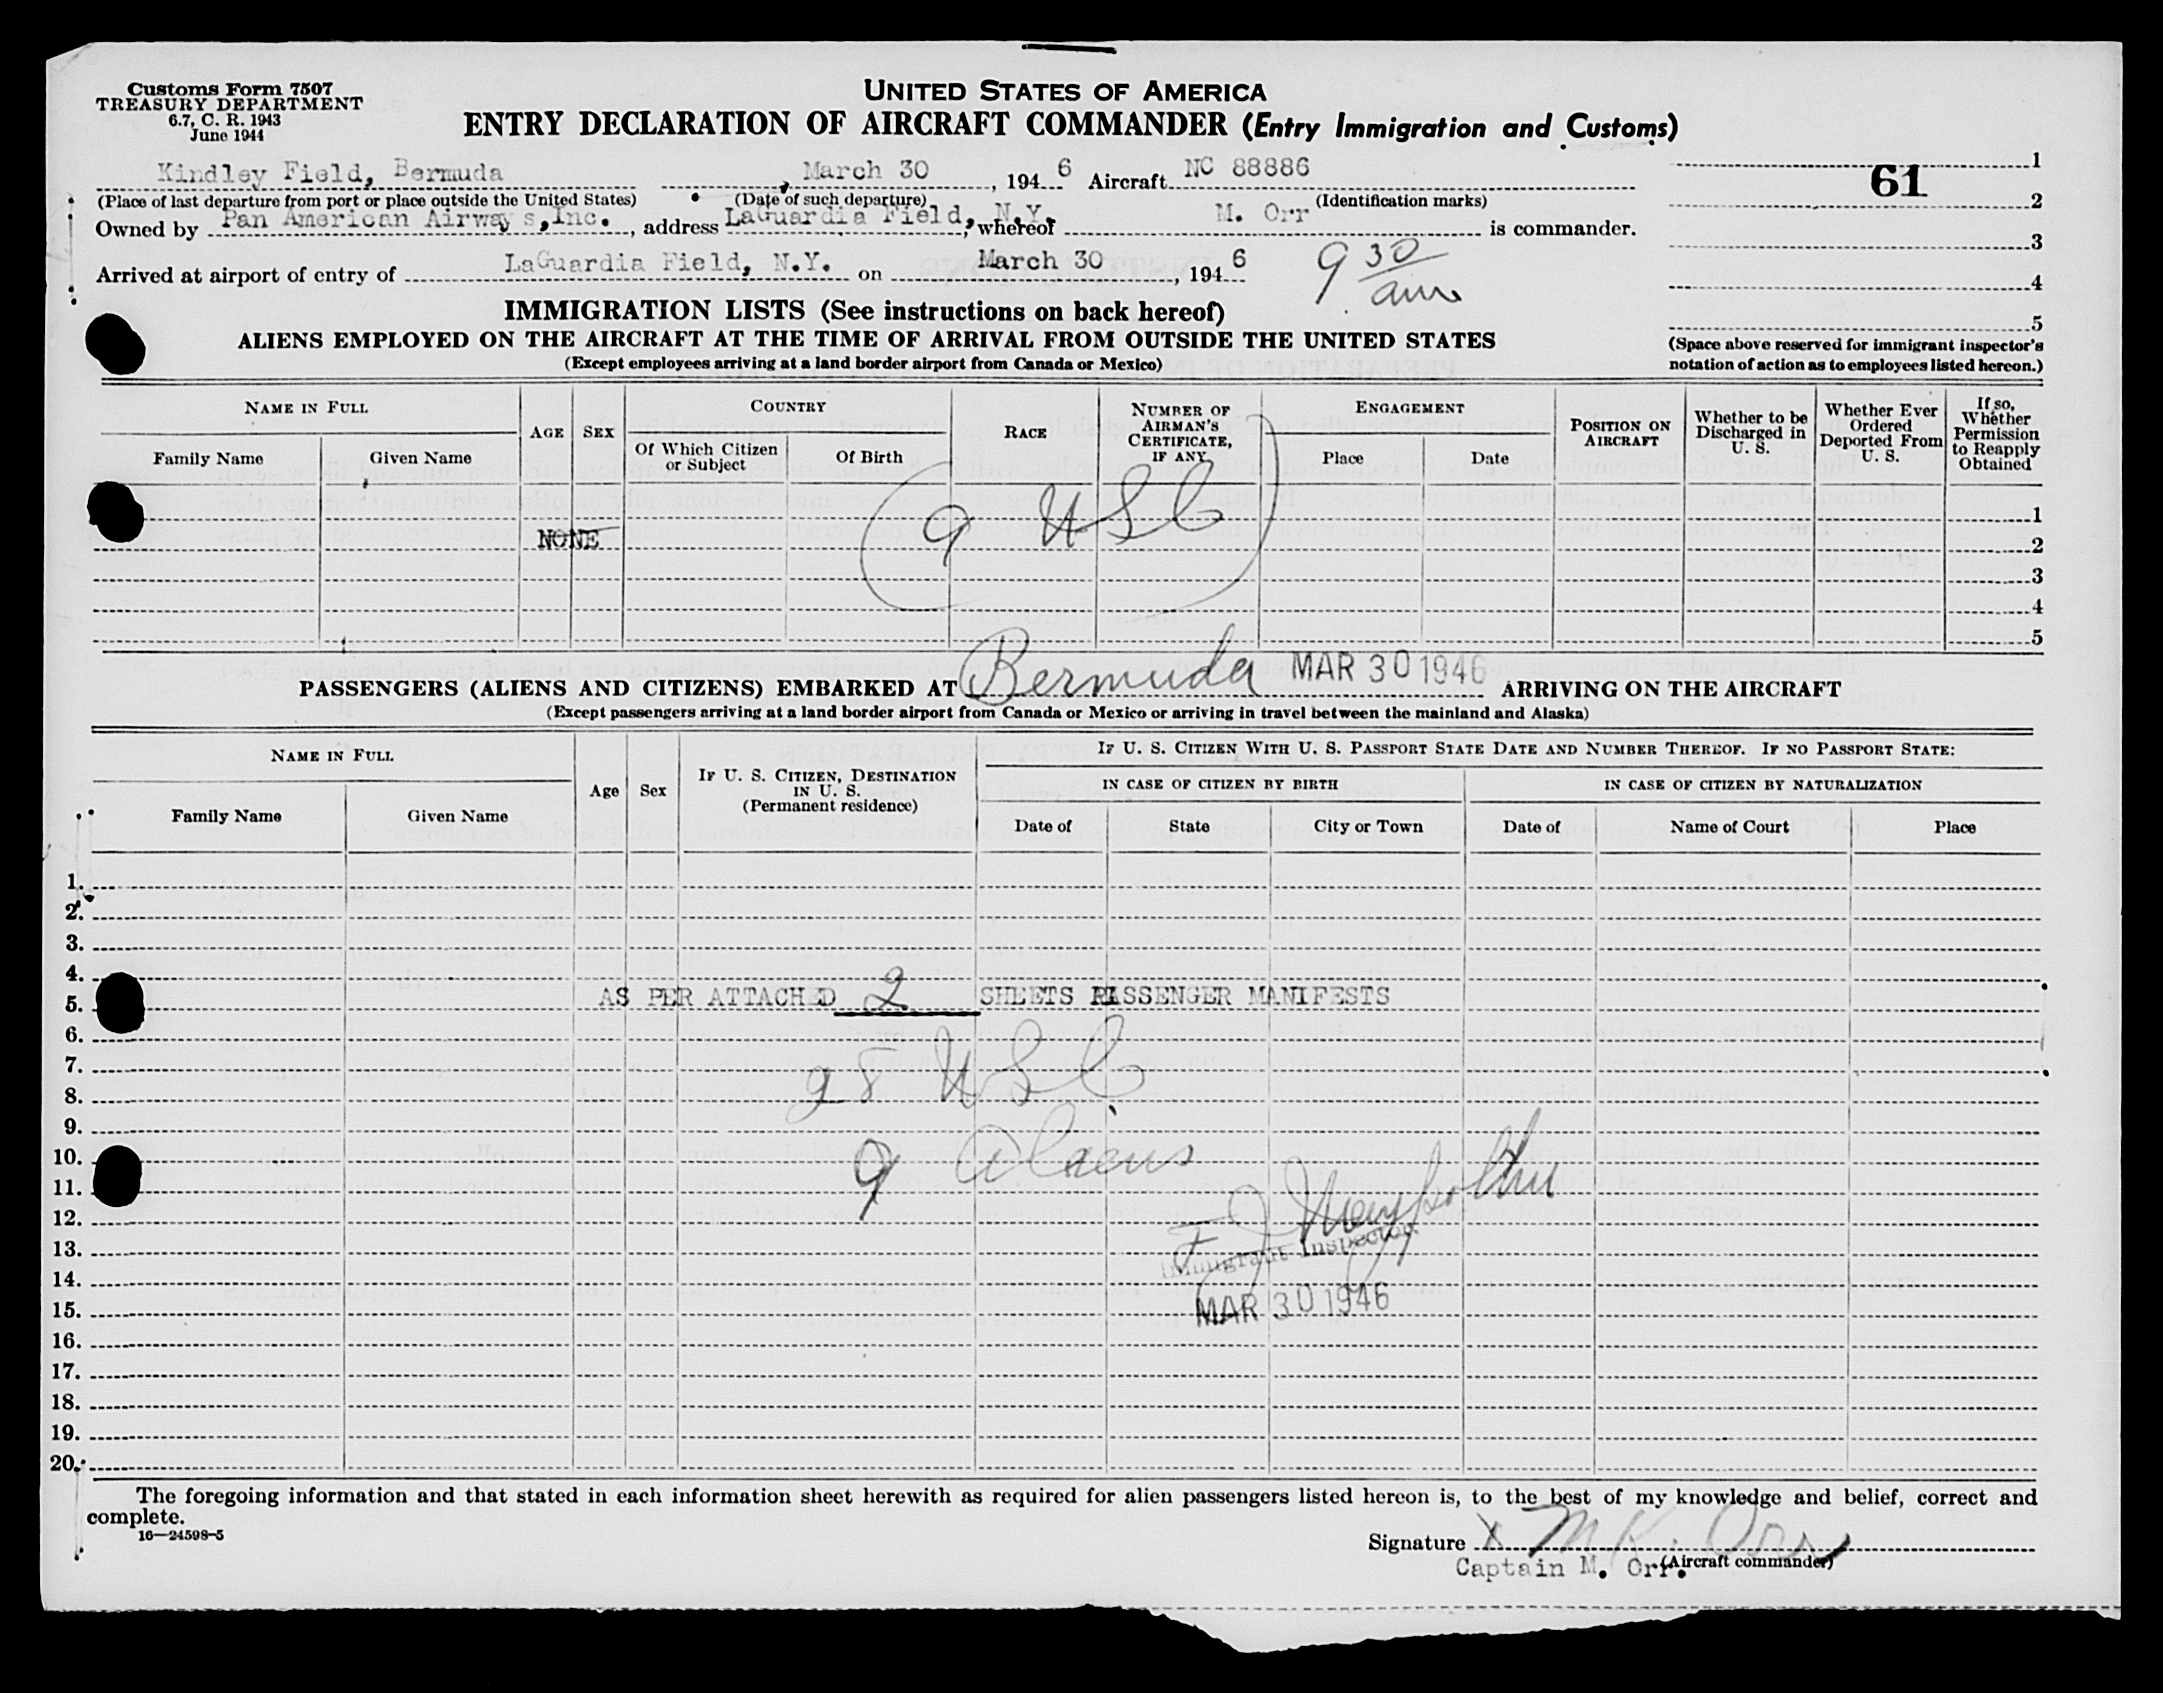 Customs Form 7507
TREASURY DEPARTMENT
6.7, C. R. 1943
June 1944
UNITED STATES OF AMERICA
ENTRY DECLARATION OF AIRCRAFT COMMANDER (Entry Immigration and Customs)
Kindley Field, Bermuda, March 30, 1946 Aircraft NC 88886
(Place of last departure from port or place outside the United States) (Date of such departure) (Identification marks)
Owned by Pan American Airways,Inc., address LaGuardia Field, N.Y., whereof M. Orr is commander.
Arrived at airport of entry of LaGuardia Field, N.Y. on March 30, 1946 9 30 am
61
1
2
3
4
5
(Space above reserved for immigrant inspector's
notation of action as to employees listed hereon.)
IMMIGRATION LISTS (See instructions on back hereof)
ALIENS EMPLOYED ON THE AIRCRAFT AT THE TIME OF ARRIVAL FROM OUTSIDE THE UNITED STATES
(Except employees arriving at a land border airport from Canada or Mexico)
NAME IN FULL
Family Name
Given Name
AGE
SEX
COUNTRY
Of Which Citizen
or Subject
Of Birth
RACE
NUMBER OF
AIRMAN'S
CERTIFICATE,
IF ANY
ENGAGEMENT
Place
Date
POSITION ON
AIRCRAFT
Whether to be
Discharged in
U. S.
Whether Ever
Ordered
Deported From
U. S.
If so,
Whether
Permission
to Reapply
Obtained
1
NONE
9 USC
2
3
4
5
PASSENGERS (ALIENS AND CITIZENS) EMBARKED AT Bermuda MAR 30 1946 ARRIVING ON THE AIRCRAFT
(Except passengers arriving at a land border airport from Canada or Mexico or arriving in travel between the mainland and Alaska)
NAME IN FULL
Family Name
Given Name
Age
Sex
IF U. S. CITIZEN, DESTINATION
IN U. S.
(Permanent residence)
IF U. S. CITIZEN WITH U. S. PASSPORT STATE DATE AND NUMBER THEREOF. IF NO PASSPORT STATE:
IN CASE OF CITIZEN BY BIRTH
IN CASE OF CITIZEN BY NATURALIZATION
Date of
State
City or Town
Date of
Name of Court
Place
1.
2.
3.
4.
5. AS PER ATTACHED 2 SHEETS PASSENGER MANIFESTS
6.
7.
8. 28 USC
9.
10.
11. 9 Aliens
12.
13. Immigrant Inspector
14.
15. MAR 30 1946
16.
17.
18.
19.
20.
The foregoing information and that stated in each information sheet herewith as required for alien passengers listed hereon is, to the best of my knowledge and belief, correct and
complete.
16—24598-5
Signature X M K. Orr
(Aircraft commander)
Captain M. Orr.